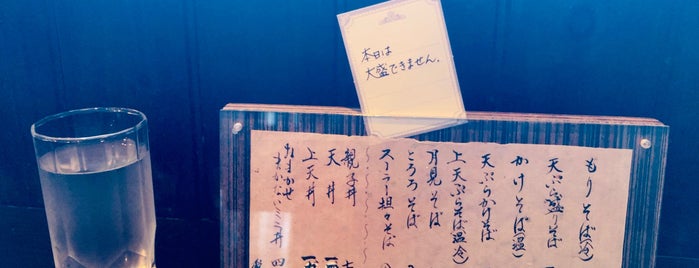 本日は
大盛できません。
もりそば(冷)
天ぷら盛りそば
かけそば(温)
天ぷらかけそば
上天ぷらそば(温冷)
月見そば
とろろそば
スーラー担々そば
〜〜〜〜〜
親子丼
天丼
上天丼
おまかせ